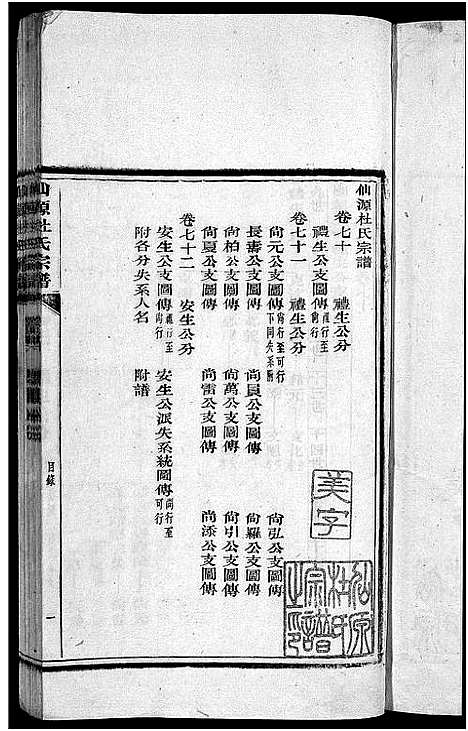 仙源杜氏宗譜
卷七十 禮生公分
禮生公支圖傳禮行至尙行
卷七十一 禮生公分
尙元公支圖傳尙行至可行下同失系附 尙弘公支圖傳
長壽公支圖傳 尙員公支圖傳 尙羅公支圖傳
尙柏公支圖傳 尙萬公支圖傳 尙引公支圖傳
尙夏公支圖傳 尙雷公支圖傳 尙添公支圖傳
卷七十二 安生公分
安生公支圖傳禮行至尙行 安生公派失系統圖傳尙行至可行
附各分失系人名 附譜
仙源杜氏宗譜
目錄
一
美字
仙源杜氏宗譜之印